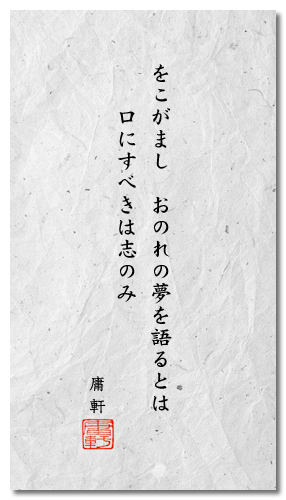 をこがまし　おのれの夢を語るとは
口にすべきは志のみ
庸軒
庸軒